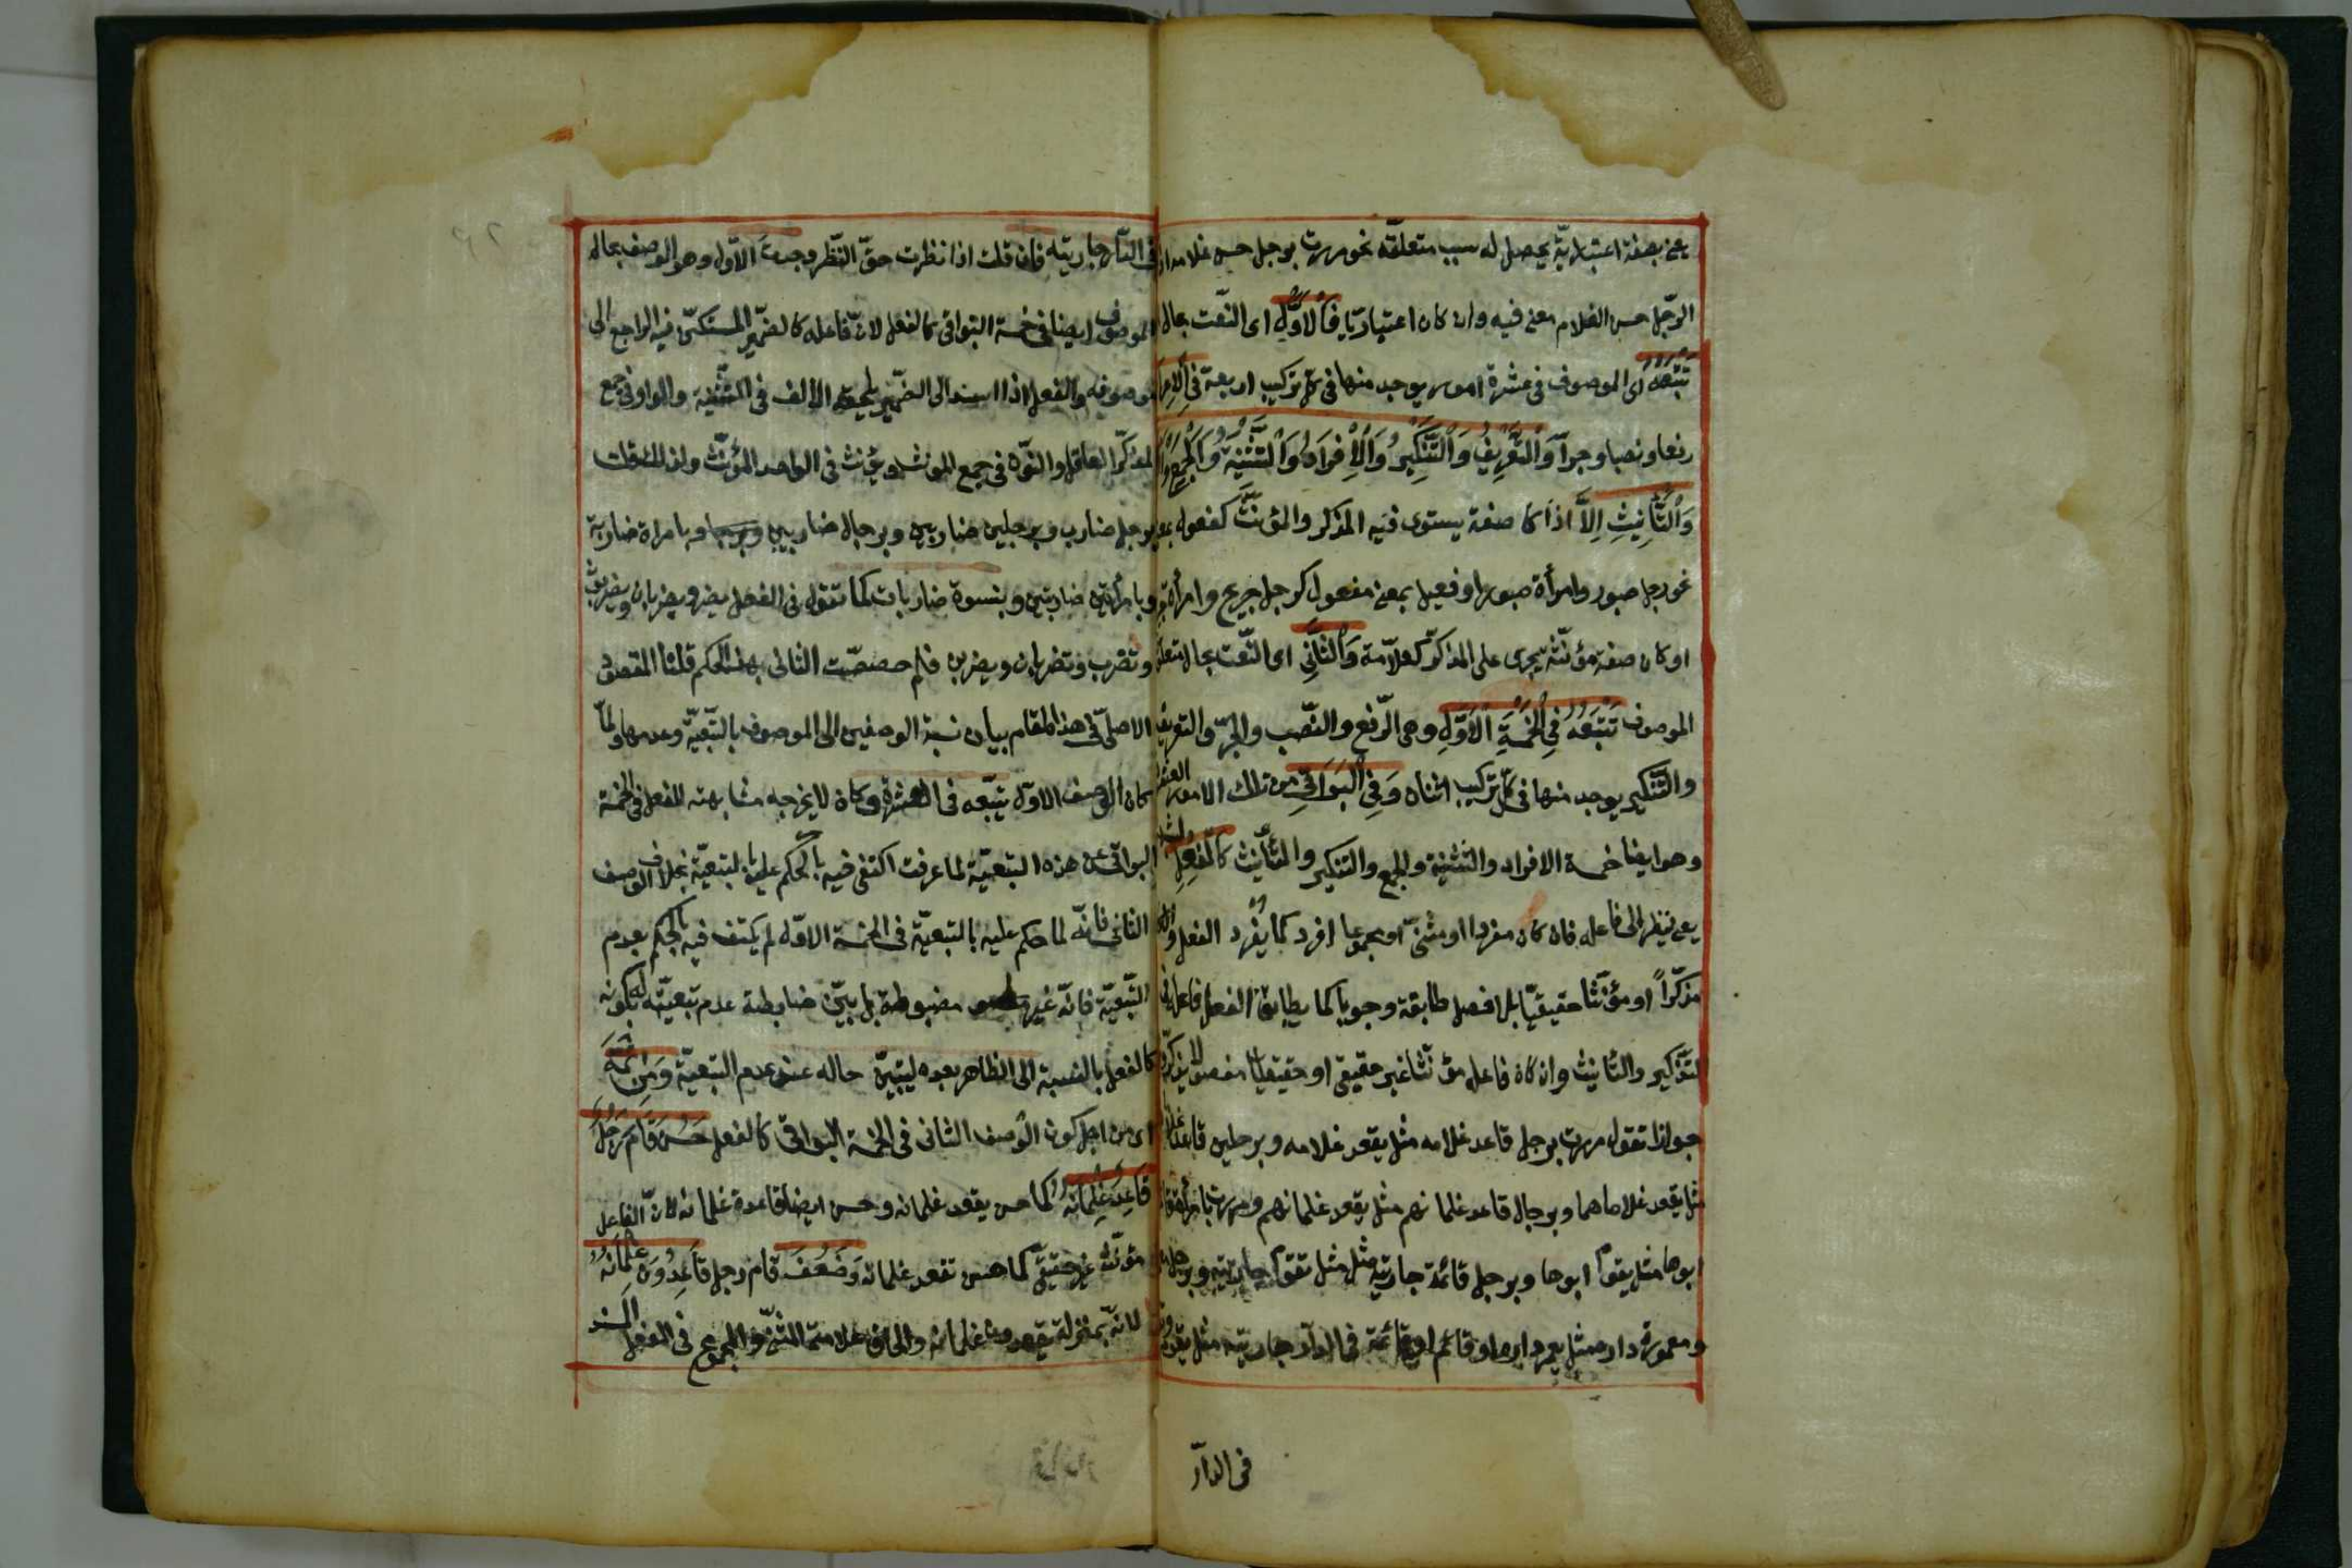 يعني بصفة اعتبارية يحصل له بسبب متعلقه نحو مررت برجل حسن غلامه اذ
الرّجل حسن الغلام معنى فيه وان كان اعتباريا فَالْاَوَّلُ اى النّعت بحال
تَتْبَعُهُ اى الموصوف فى عشرة امور يوجد منها فى كل تركيب اربعة فِى الْاِعْرَابِ
رفعا ونصبا وجرا وَالتَّعْرِيفِ وَالتَّنْكِيرِ وَالْاِفْرَادِ وَالتَّثْنِيَةِ وَالْجَمْعِ
وَالتَّأْنِيثِ اِلاَّ اذا كا صفة يستوى فيه المذكر والمؤنث كفعول
نحو رجل صبور وامرأة صبور او فعيل بمعنى مفعول كرجل جريح وامرأة
او كان صفة مؤنّثة تجرى على المذكّر كعلاّمة وَالثَّانِى اى النّعت بحال متعلق
الموصوف تَتْبَعُهُ فِى الْخَمْسَةِ الْاُوَّلِ وهى الرّفع والنّصب والجرّ والتعريف
والتّنكير يوجد منها فى كلّ تركيب اثنان وَفِى الْبَوَاقِى من تلك الامور العشرة
وهو ايضا خمسة الافراد والتثنية والجمع والتذكير والتّأنيث كَالْفِعْلِ
يعنى ينظر الى فاعله فان كان مفردا او مثنّى او مجموعا افرد كما يفرد الفعل وان كان
مذكّراً او مؤنّثا حقيقيّا بلا فصل طابقه وجوبا كما يطابق الفعل فاعله فى
التّذكير والتّأنيث وان كان فاعله مؤنّثا غير حقيقى او حقيقيا مفصولا يذكّر
جوازا تقول مررت برجل قاعد غلامه مثل يقعد غلامه وبرجلين قاعد
مثل يقعد غلاماهما وبرجال قاعد غلمانهم مثل يقعد غلمانهم ومررت بامرأة قائم
ابوها مثل يقوم ابوها وبرجل قائمة جاريته مثل تقوم جاريته وبرجل
ومعمورة داره مثل يعمر داره او قائم او قائمة فى الدّار جاريته مثل يقوم
فى الدّار
فى الدّار جاريته فان قلت اذا نظرت حقّ النّظر وجدت الاوّل وهو الوصف بحال
الموصوف ايضا فى خمسة البواقى كالفعل لانّ فاعله كالضّمير المستكنّ فيه الراجع الى
موصوفه والفعل اذا اسند الى الضّمير يلحقه الالف فى التّثنية والواو فى جمع
المذكّر العاقل والنّون فى جمع المؤنث ويؤنث فى الواحد المؤنّث ولذلك قلت
برجل ضارب وبرجلين ضاربين وبرجال ضاربين وبامراة ضاربة
وبامرأتين ضاربتين وبنسوة ضاربات كما تقول فى الفعل يضرب ويضربان ويضربون
وتضرب وتضربان ويضربن فلم خصصّت الثانى بهذا الحكم قلنا المقصود
الاصلىّ فى هذا المقام بيان نسبة الوصفين الى الموصوف بالتّبعيّة وعدمها ولمّا
كان الوصف الاوّل يتبعه فى العشرة وكان لا يخرجه مشابهته للفعل فى الخمسة
البواقى عن هذه التبعيّة لما عرفت اكتفى فيه بالحكم عليه بالتبعيّة بخلاف الوصف
الثانى فانّه لما حكم عليه بالتبعيّة فى الخمسة الاوّل لم يكتف فيه بالحكم بعدم
التّبعيّة فانّه غير مضبوطة بل بيّن ضابطة عدم تبعيّته له بكونه
كالفعل بالنسبة الى الظاهر بعده ليتبيّن حاله عند عدم التبعيّة وَمِنْ ثَمَّةَ
اى من اجل كون الوصف الثانى فى الخمسة البواقى كالفعل حَسُنَ قَامَ رَجُلٌ
قَاعِدٌ غِلْمَانُهُ كما حسن يقعد غلمانه وحسن ايضا قاعدة غلمانه لانّ الفاعل
مؤنّث غير حقيقىّ كما حسن تقعد غلمانه وَضَعُفَ قام رجل قَاعِدُونَ غِلْمَانُهُ
لانّه بمنزلة يقعدون غلمانه والحاق علامتى المثنّى والمجموع فى الفعل المسند